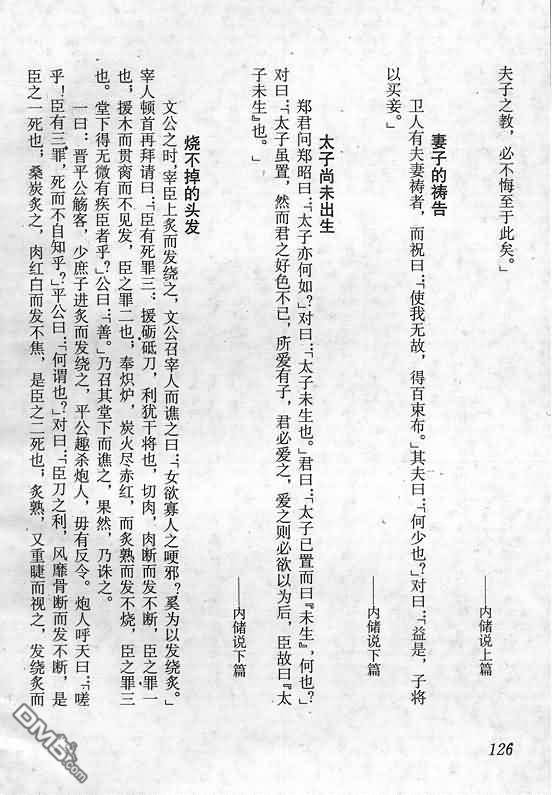 夫子之教，必不悔至于此矣。」
——内储说上篇
妻子的祷告
卫人有夫妻祷者，而祝曰：「使我无故，得百束布。」其夫曰：「何少也？」对曰：「益是，子将
以买妾。」
——内储说下篇
太子尚未出生
郑君问郑昭曰：「太子亦何如？」对曰：「太子未生也。」君曰：「太子已置而曰『未生』，何也？」
对曰：「太子虽置，然而君之好色不已，所爱有子，君必爱之，爱之则必欲以为后，臣故曰『太
子未生』也。」
——内储说下篇
烧不掉的头发
文公之时，宰臣上炙而发绕之，文公召宰人而谯之曰：「女欲寡人之哽邪？奚为以发绕炙。」
宰人顿首再拜请曰：「臣有死罪三：援砺砥刀，利犹干将也，切肉，肉断而发不断，臣之罪一
也，援木而贯脔而不见发，臣之罪二也，奉炽炉，炭火尽赤红，而炙熟而发不烧，臣之罪三
也。堂下得无微有疾臣者乎？」公曰：「善。」乃召其堂下而谯之，果然，乃诛之。
一曰：晋平公觞客，少庶子进炙而发绕之，平公趣杀炮人，毋有反令。炮人呼天曰：「嗟
乎！臣有三罪，死而不自知乎？」平公曰：「何谓也？」对曰：「臣刀之利，风靡骨断而发不断，是
臣之一死也，桑炭炙之，肉红白而发不焦，是臣之二死也，炙熟，又重睫而视之，发绕炙而
126